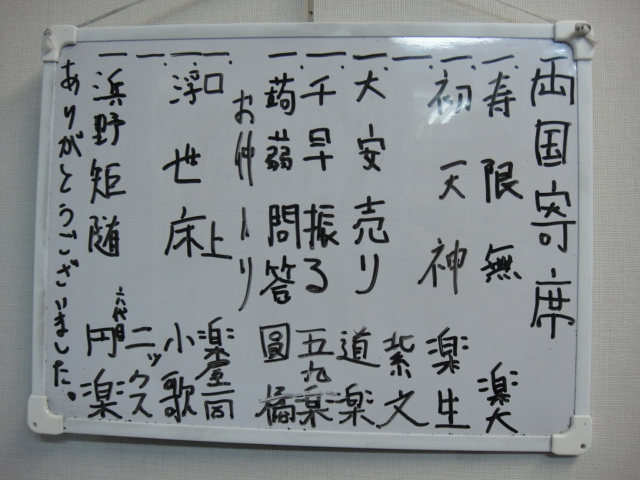 両国寄席
一、寿限無 楽大
一、初天神 楽生
一、紫文
一、大安売り 道楽
一、千早振る 五九楽
一、蒟蒻問答 圓橘
お仲入り
一、口上 楽屋一同
一、浮世床 小歌
一、ニックス
一、浜野矩随 六代目円楽
ありがとうございました。